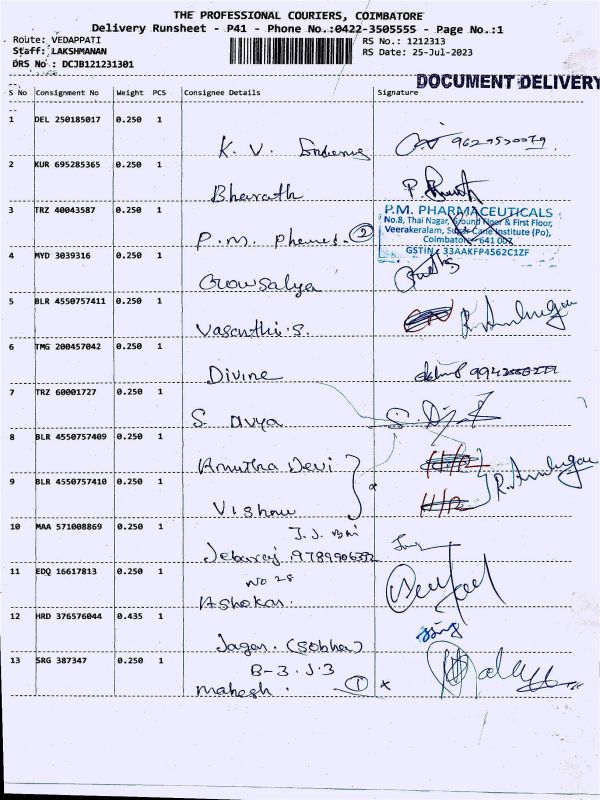 THE PROFESSIONAL COURIERS, COIMBATORE
Delivery Runsheet - P41 - Phone No.:0422-3505555 - Page No.:1
Route: VEDAPPATI
Staff: LAKSHMANAN
DRS No : DCJB121231301
RS No.: 1212313
RS Date: 25-Jul-2023
DOCUMENT DELIVERY
S No Consignment No Weight PCS Consignee Details Signature
1 DEL 250185017 0.250 1
K. V.
2 KUR 695285365 0.250 1
Bharath
3 TRZ 40043587 0.250 1
P.M. ②
P.M. PHARMACEUTICALS
No.8, Thai Nagar, Ground Floor & First Floor,
Veerakeralam, Sugar Cane Institute (Po),
Coimbatore - 641 007.
GSTIN : 33AAKFP4562C1ZF
4 MYD 3039316 0.250 1
Gowsalya
5 BLR 4550757411 0.250 1
Vasanthi.S.
6 TMG 200457042 0.250 1
Divine
7 TRZ 60001727 0.250 1
S. Divya
8 BLR 4550757409 0.250 1
Amutha Devi
9 BLR 4550757410 0.250 1
10 MAA 571008869 0.250 1
J.J.
Jebaraj 9789906392
11 EDQ 16617813 0.250 1
No 28
Ashokan.
12 HRD 376576044 0.435 1
Jagan. (Sobha)
13 SRG 387347 0.250 1
B-3. J.3
Mahesh. ①